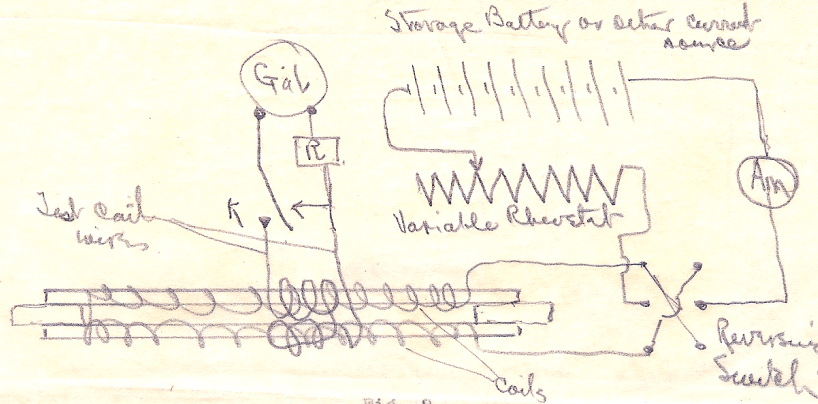 Storage Battery or other current
source
Gal
R
Am
K
Test Coil
wires
Variable Rheostat
Reversing
Switch
Coils